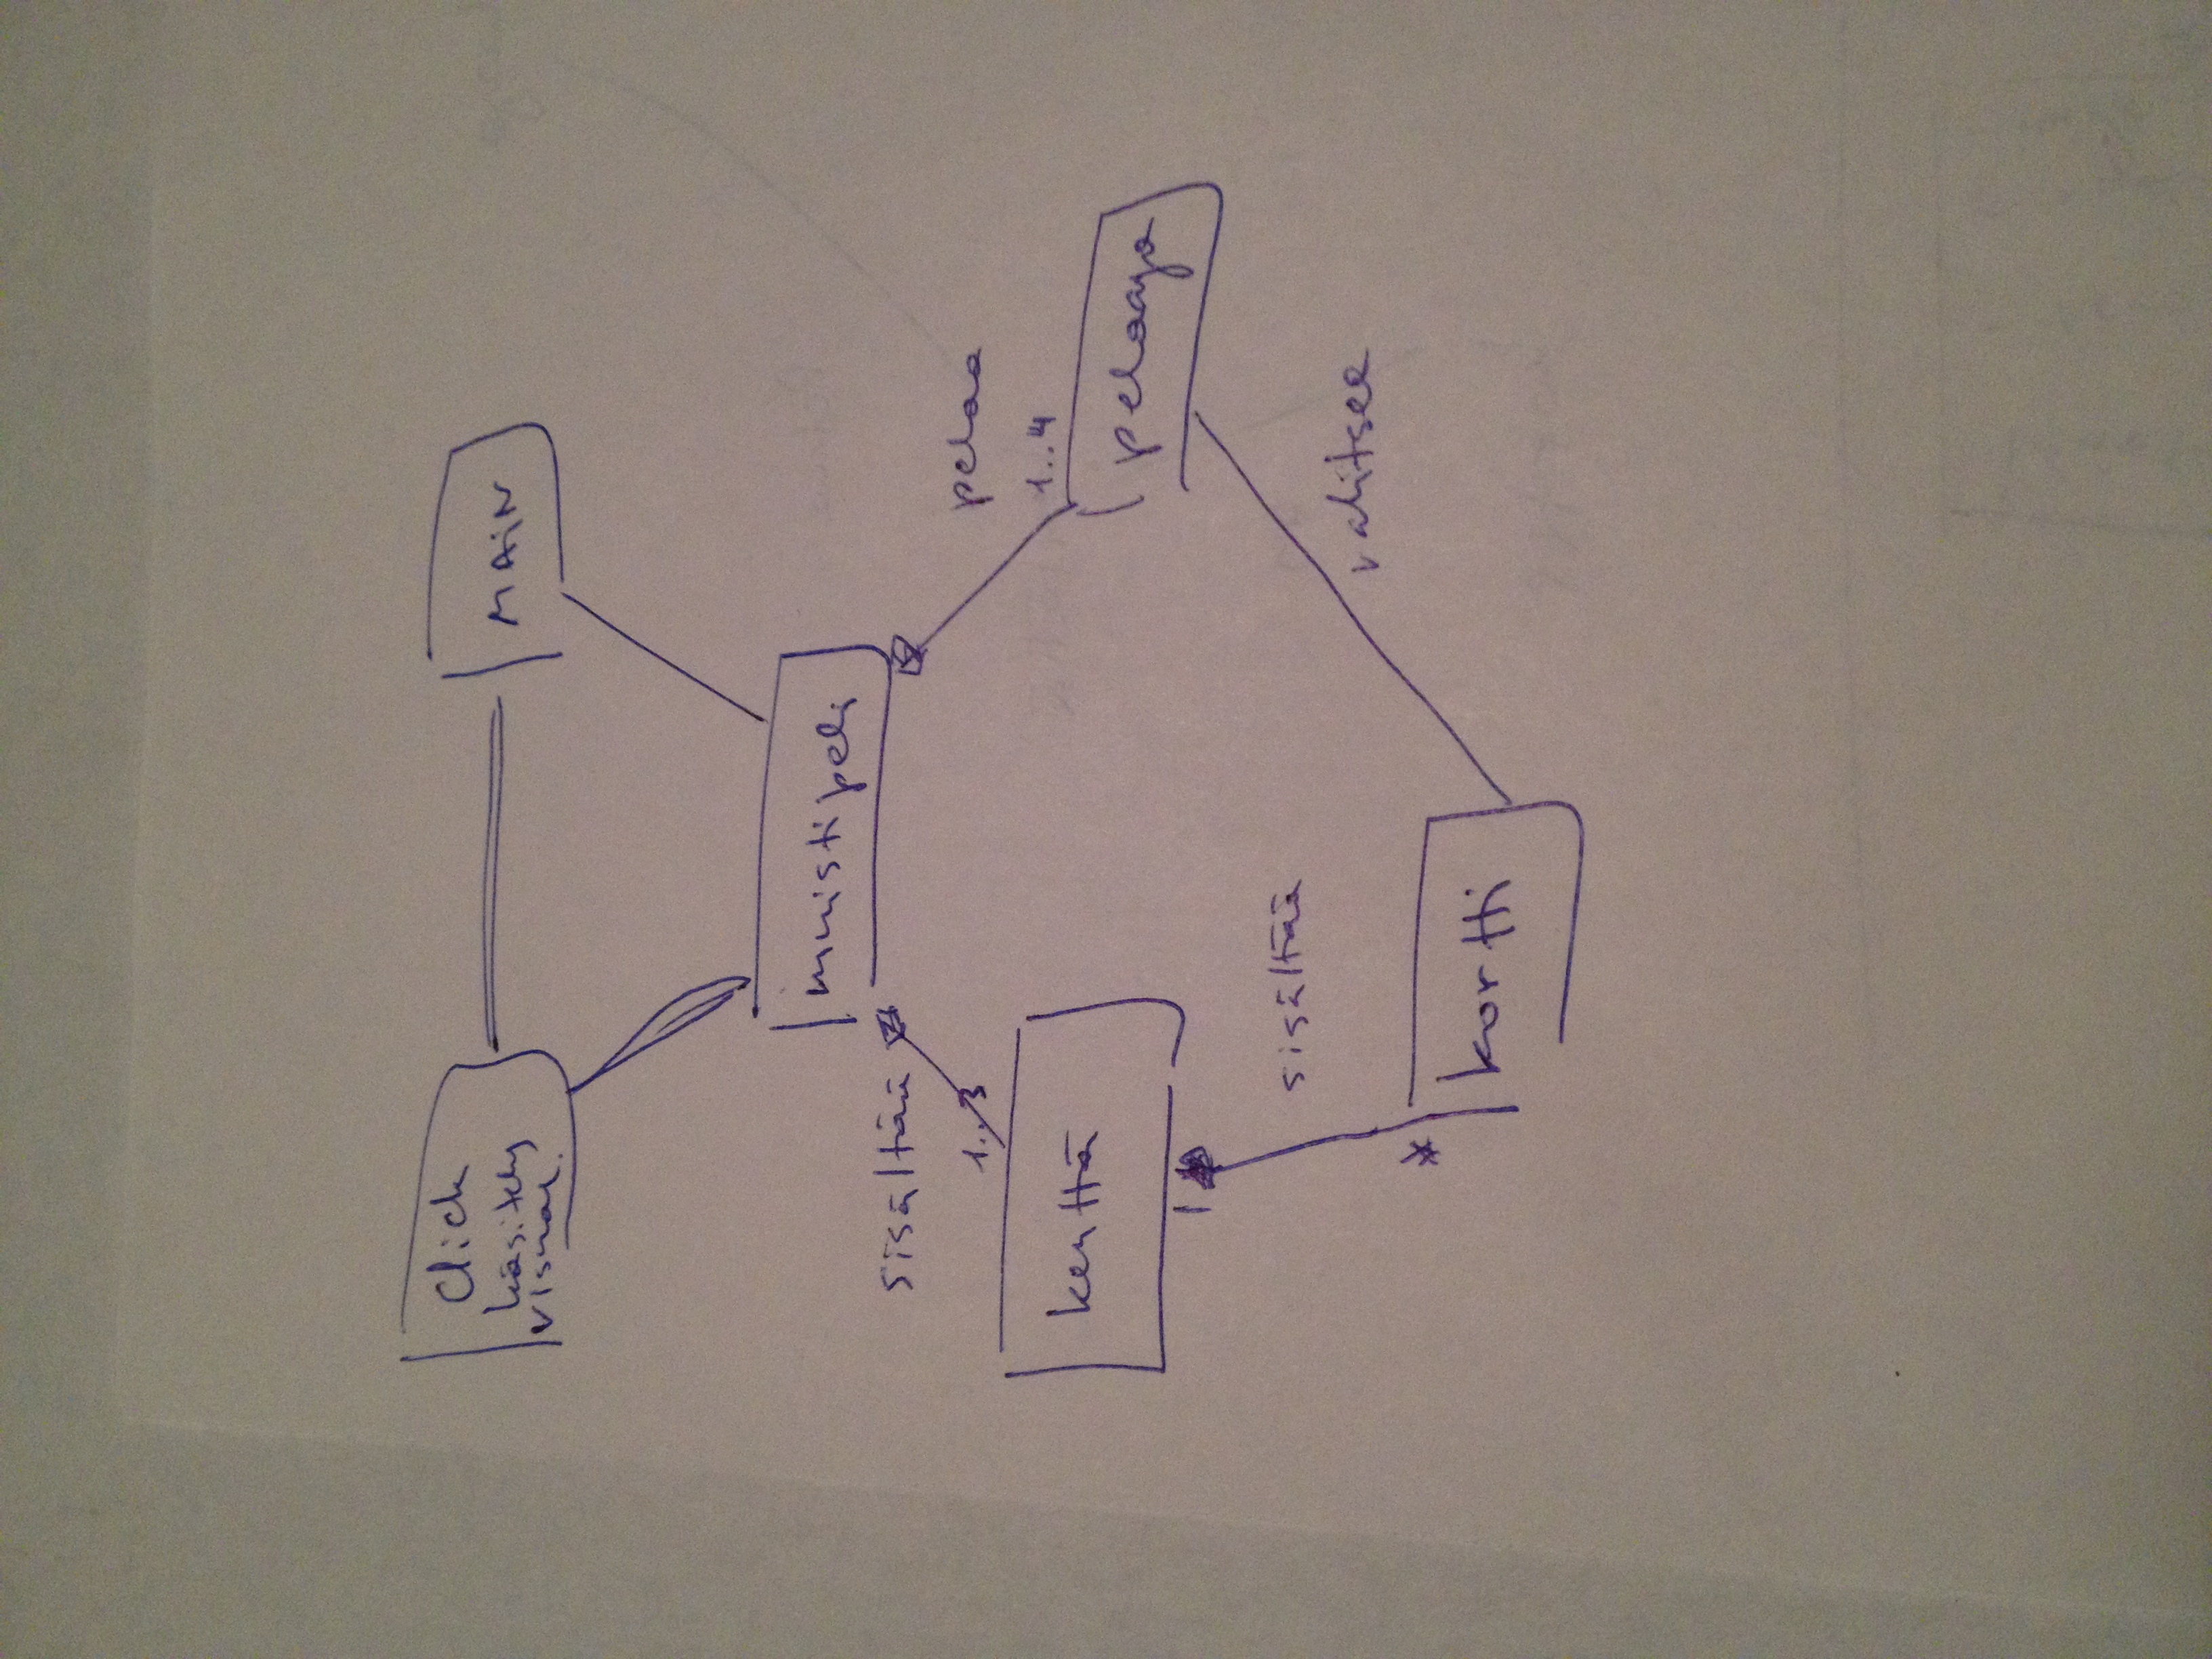 Click
käsittely
visual.
MAIN
muistipeli
sisältää
1..3
pelaa
1..4
kenttä
pelaaja
1
sisältää
valitsee
*
kortti